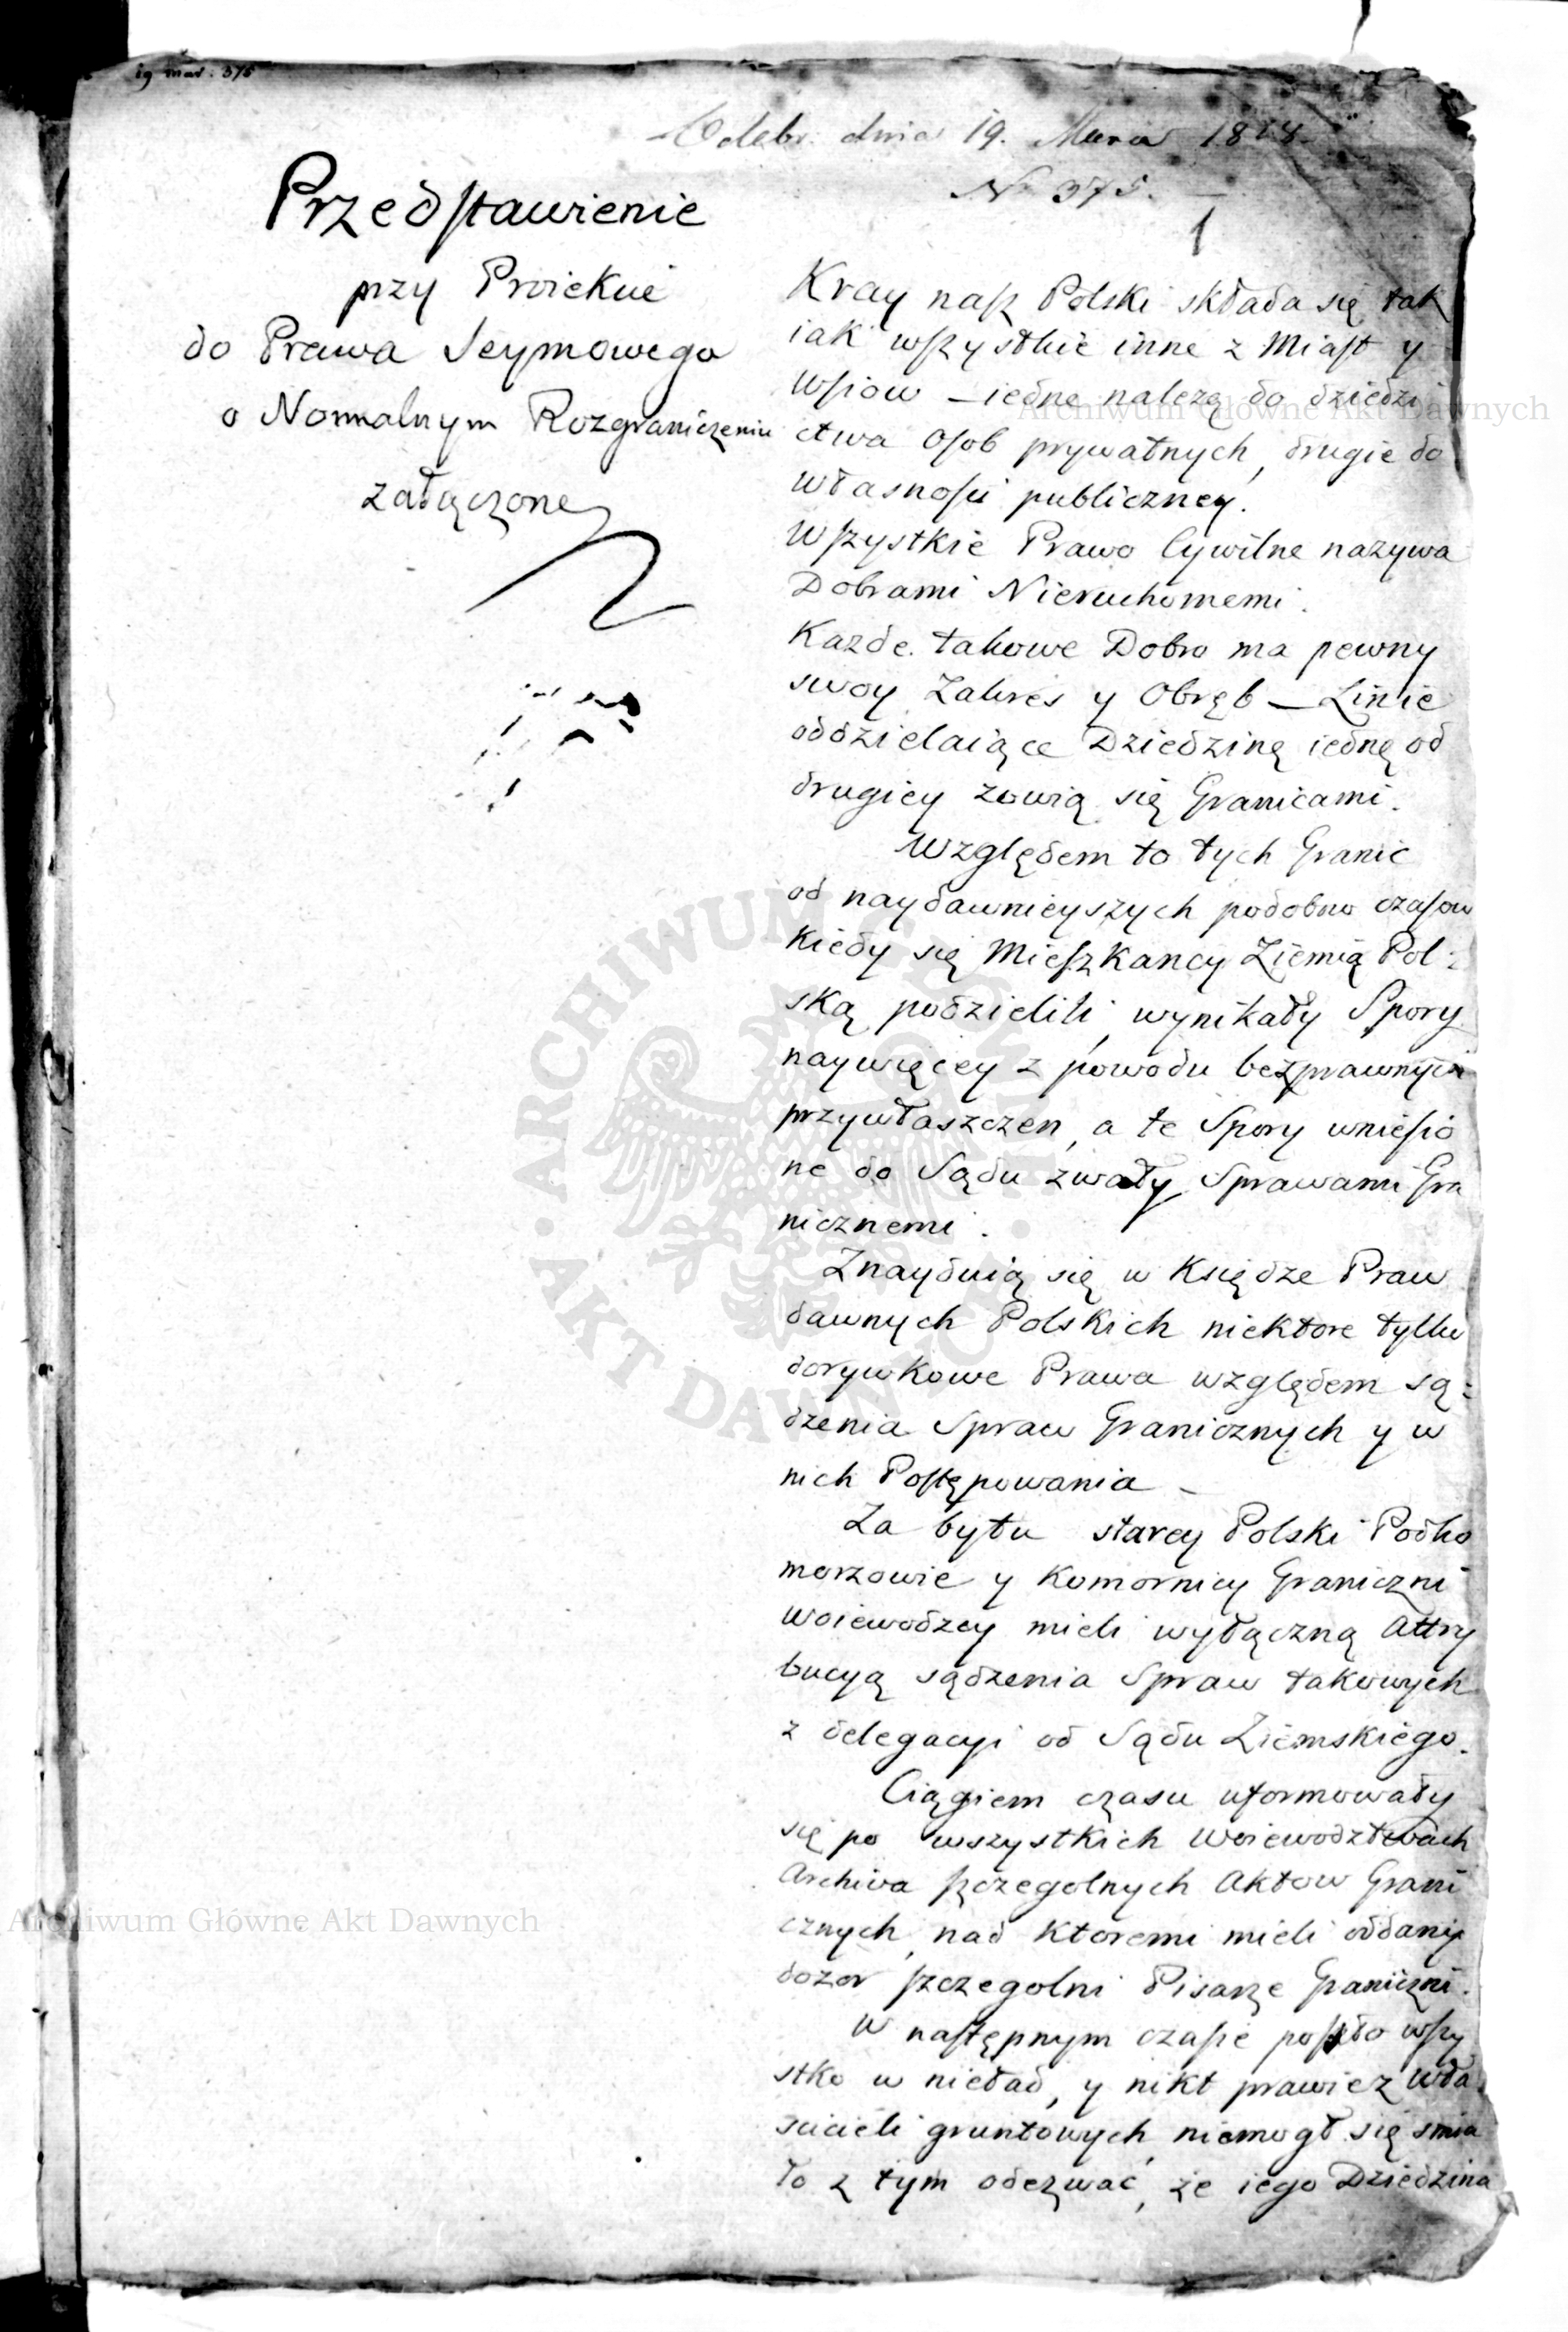 19 mar: 375
Odebr. dnia 19. Marca 1818.
N 375.
1
Przedstawienie
przy Proiekcie
do Prawa Seymowego
o Normalnym Rozgraniczeniu
załączone
Kray nasz Polski składa się tak
iak wszystkie inne z Miast y
Wsiow – iedne należą do dziedzi
ctwa Osob prywatnych, drugie do
własności publiczney.
Wszystkie Prawo Cywilne nazywa
Dobrami Nieruchomemi.
Każde takowe Dobro ma pewny
swoy Zakres y Obręb – Linie
oddzielaiące Dziedzinę iedną od
drugiey zowią się Granicami.
Względem to tych Granic
od naydawnieyszych podobno czasow
kiedy się Mieszkancy Ziemią Pol-
ską podzielili, wynikały Spory
naywięcey z powodu bezprawnych
przywłaszczen, a te Spory wniesio
ne do Sądu zwały Sprawami Gra
nicznemi.
Znayduią się w Księdze Praw
dawnych Polskich niektore tylko
dorywkowe Prawa względem są:
dzenia Spraw Granicznych y w
nich Postępowania –
Za bytu starey Polski Podko
morzowie y Komornicy Graniczni
Woiewodzcy mieli wyłączną Attry
bucyą sądzenia Spraw takowych
z delegacyi od Sądu Ziemskiego.
Ciągiem czasu uformowały
się po wszystkich Woiewodztwach
Archiva szczegolnych Aktow Grani
cznych, nad ktoremi mieli oddany
dozor szczegolni Pisarze Graniczni.
W następnym czasie poszło wszy
stko w nieład, y nikt prawie z Wła
scicieli gruntowych niemogł się smia
ło z tym odezwać, że iego Dziedzina
Archiwum Główne Akt Dawnych
Archiwum Główne Akt Dawnych
ARCHIWUM GŁÓWNE AKT DAWNYCH